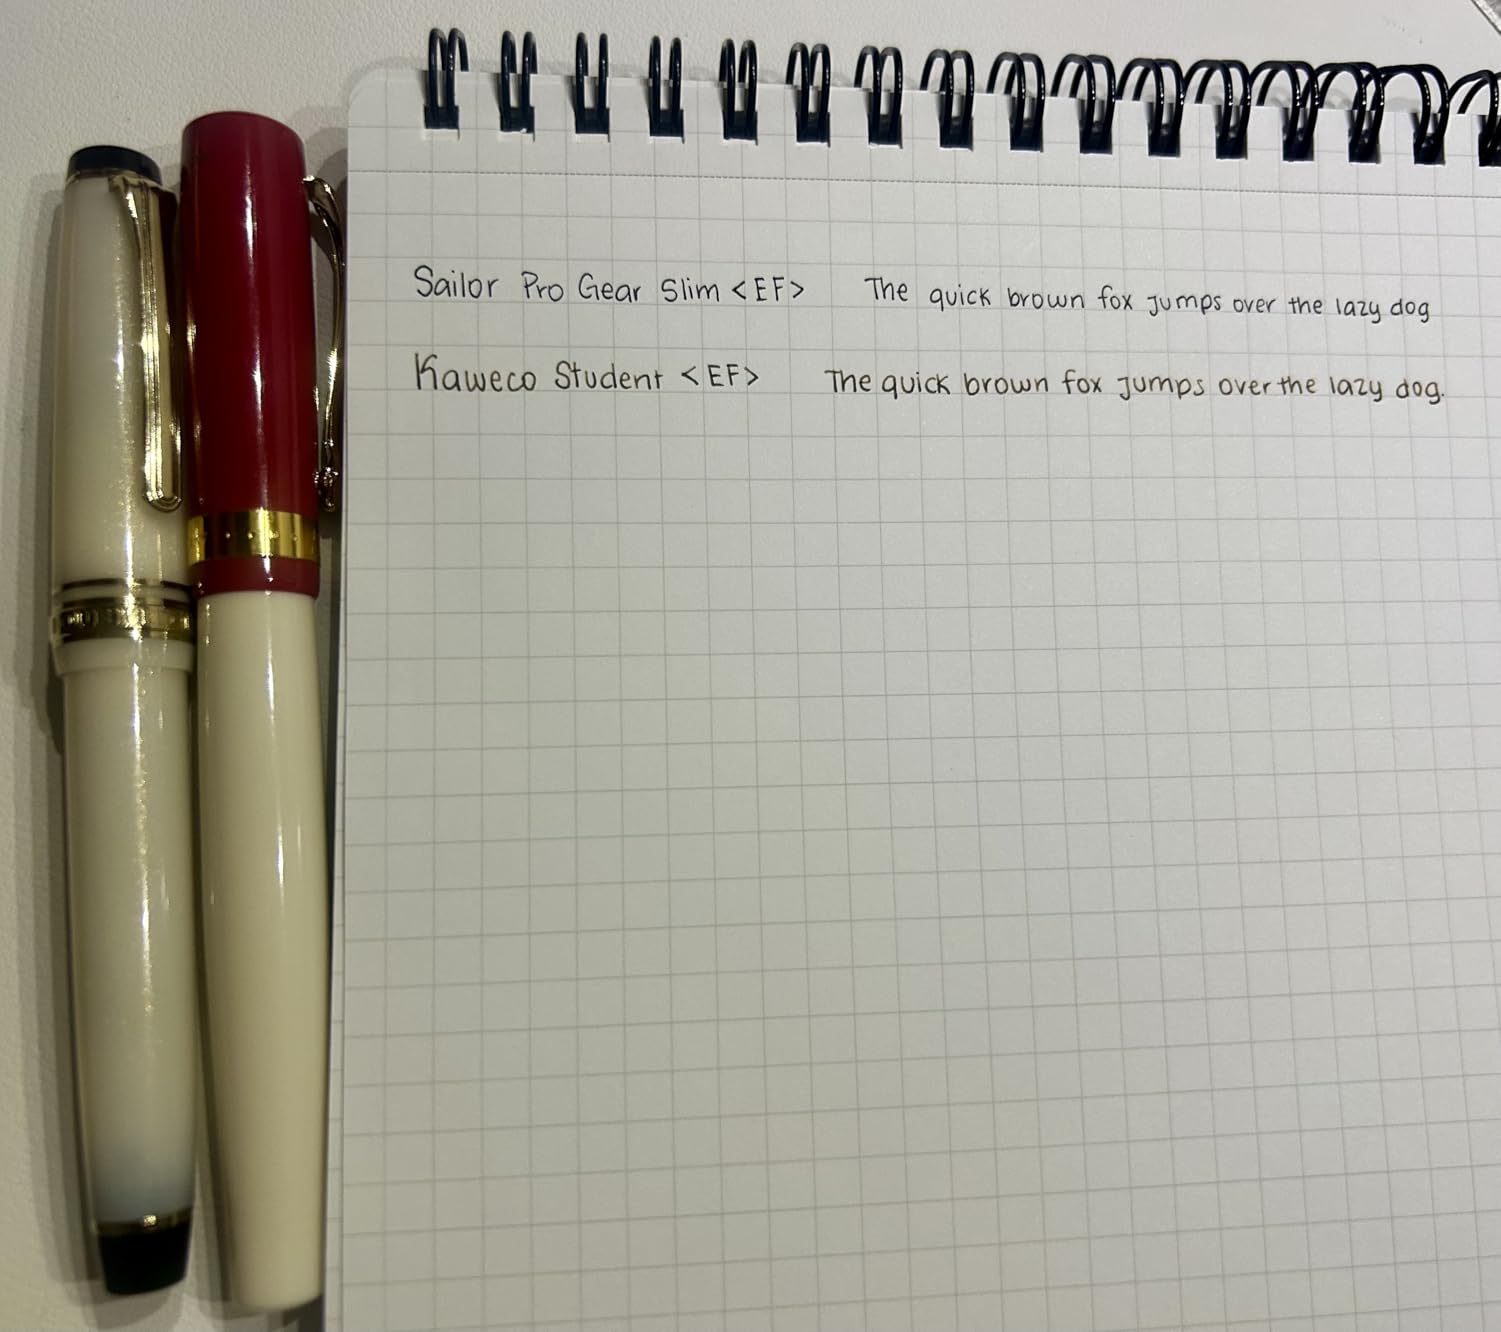 Sailor Pro Gear Slim <EF> The quick brown fox jumps over the lazy dog
Kaweco Student <EF> The quick brown fox jumps over the lazy dog.